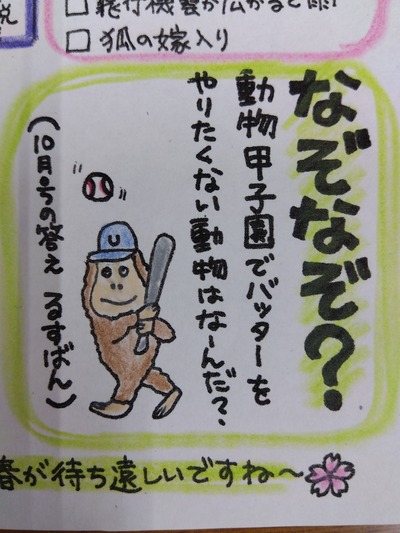 説
□ 飛行機雲が広がると雨!
□ 狐の嫁入り
なぞなぞ?
動物甲子園でバッターを
やりたくない動物はなーんだ?
(10月号の答え るすばん)
U
春が待ち遠しいですね〜